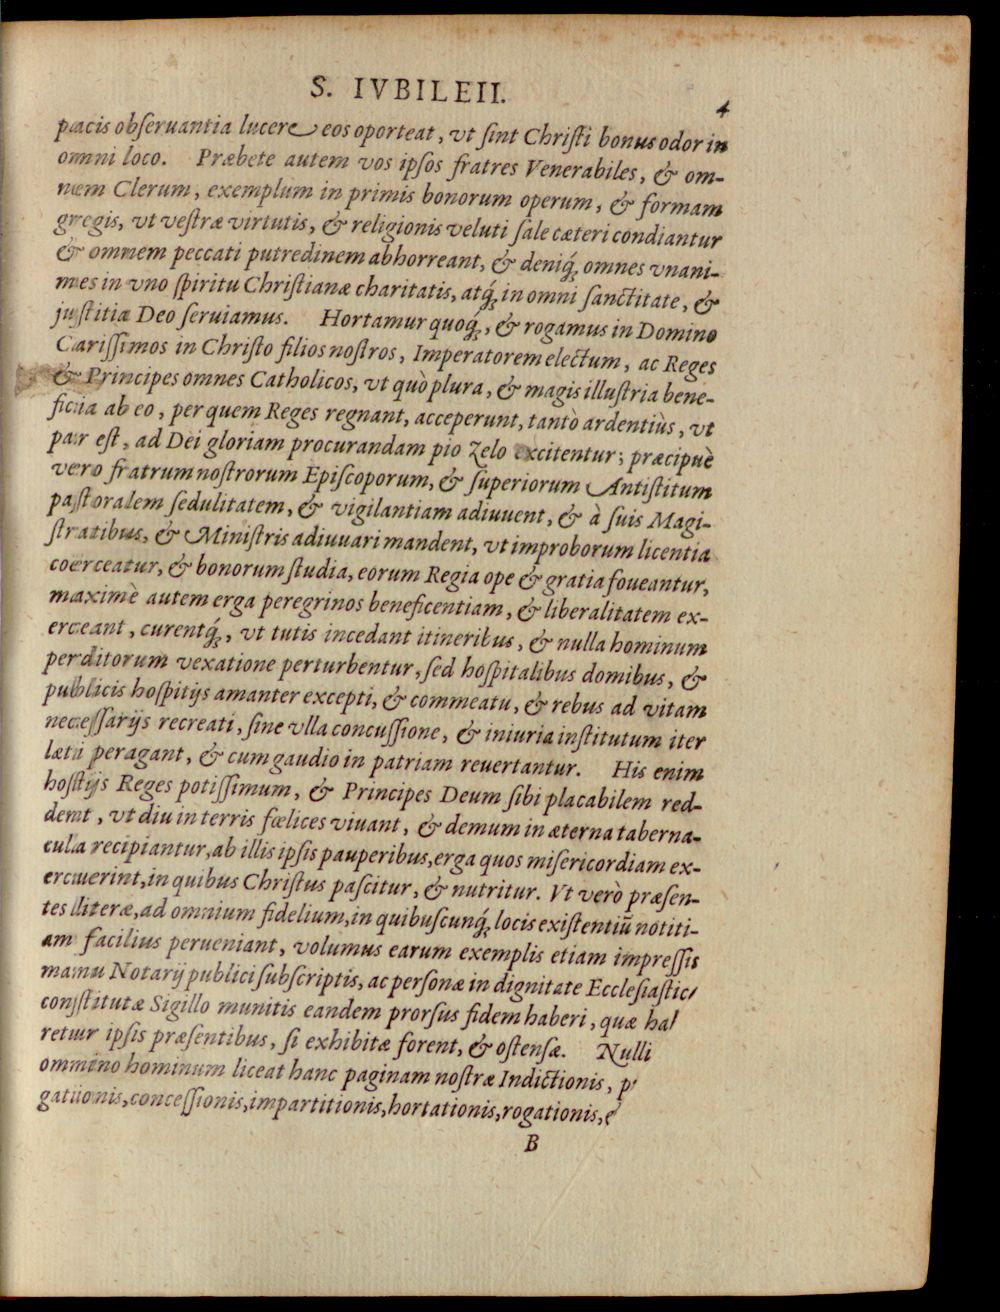 S. IVBILEII.
4
pacis obſeruantia lucere eos oporteat, vt ſint Chriſti bonus odor in
omni loco. Præbete autem vos ipſos fratres Venerabiles, & om-
nem Clerum, exemplum in primis bonorum operum, & formam
gregis, vt veſtræ virtutis, & religionis veluti ſale cæteri condiantur
& omnem peccati putredinem abhorreant, & deniq́; omnes vnani-
mes in vno ſpiritu Chriſtianæ charitatis, atq́; in omni ſanctitate, &
juſtitia Deo ſeruiamus. Hortamur quoq́;, & rogamus in Domino
Cariſſimos in Chriſto filios noſtros, Imperatorem electum, ac Reges
& Principes omnes Catholicos, vt quò plura, & magis illuſtria bene-
ficia ab eo, per quem Reges regnant, acceperunt, tantò ardentiùs, vt
par eſt, ad Dei gloriam procurandam pio Zelo excitentur; præcipuè
vero fratrum noſtrorum Epiſcoporum, & ſuperiorum Antiſtitum
paſtoralem ſedulitatem, & vigilantiam adiuuent, & à ſuis Magi-
ſtratibus, & Miniſtris adiuuari mandent, vt improborum licentia
coërceatur, & bonorum ſtudia, eorum Regia ope & gratia foueantur,
maximè autem erga peregrinos beneficentiam, & liberalitatem ex-
erceant, curentq́;, vt tutis incedant itineribus, & nulla hominum
perditorum vexatione perturbentur, ſed hoſpitalibus domibus, &
publicis hoſpitijs amanter excepti, & commeatu, & rebus ad vitam
neceſſarijs recreati, ſine vlla concuſſione, & iniuria inſtitutum iter
læti peragant, & cum gaudio in patriam reuertantur. His enim
hoſtijs Reges potiſſimum, & Principes Deum ſibi placabilem red-
dent, vt diu in terris fœlices viuant, & demum in æterna taberna-
cula recipiantur, ab illis ipſis pauperibus, erga quos miſericordiam ex-
ercuerint, in quibus Chriſtus paſcitur, & nutritur. Vt verò præſen-
tes literæ, ad omnium fidelium, in quibuſcunq́; locis exiſtentiũ notiti-
am facilius perueniant, volumus earum exemplis etiam impreſſis
manu Notarij publici ſubſcriptis, ac perſonæ in dignitate Eccleſiaſtic
conſtitutæ Sigillo munitis eandem prorſus fidem haberi, quæ ha
retur ipſis præſentibus, ſi exhibitæ forent, & oſtenſæ. Nulli
omnino hominum liceat hanc paginam noſtræ Indictionis, p
gationis, conceſſionis, impartitionis, hortationis, rogationis, &
B